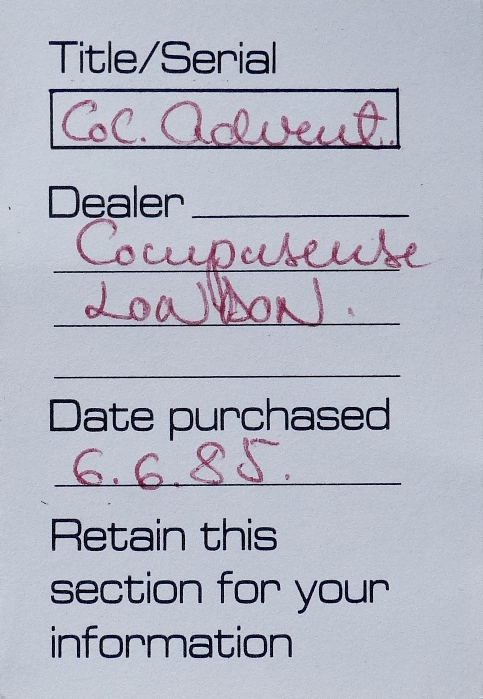 Title/Serial
CoC. Advent.
Dealer
Compusense
LONDON.
Date purchased
6.6.85.
Retain this
section for your
information